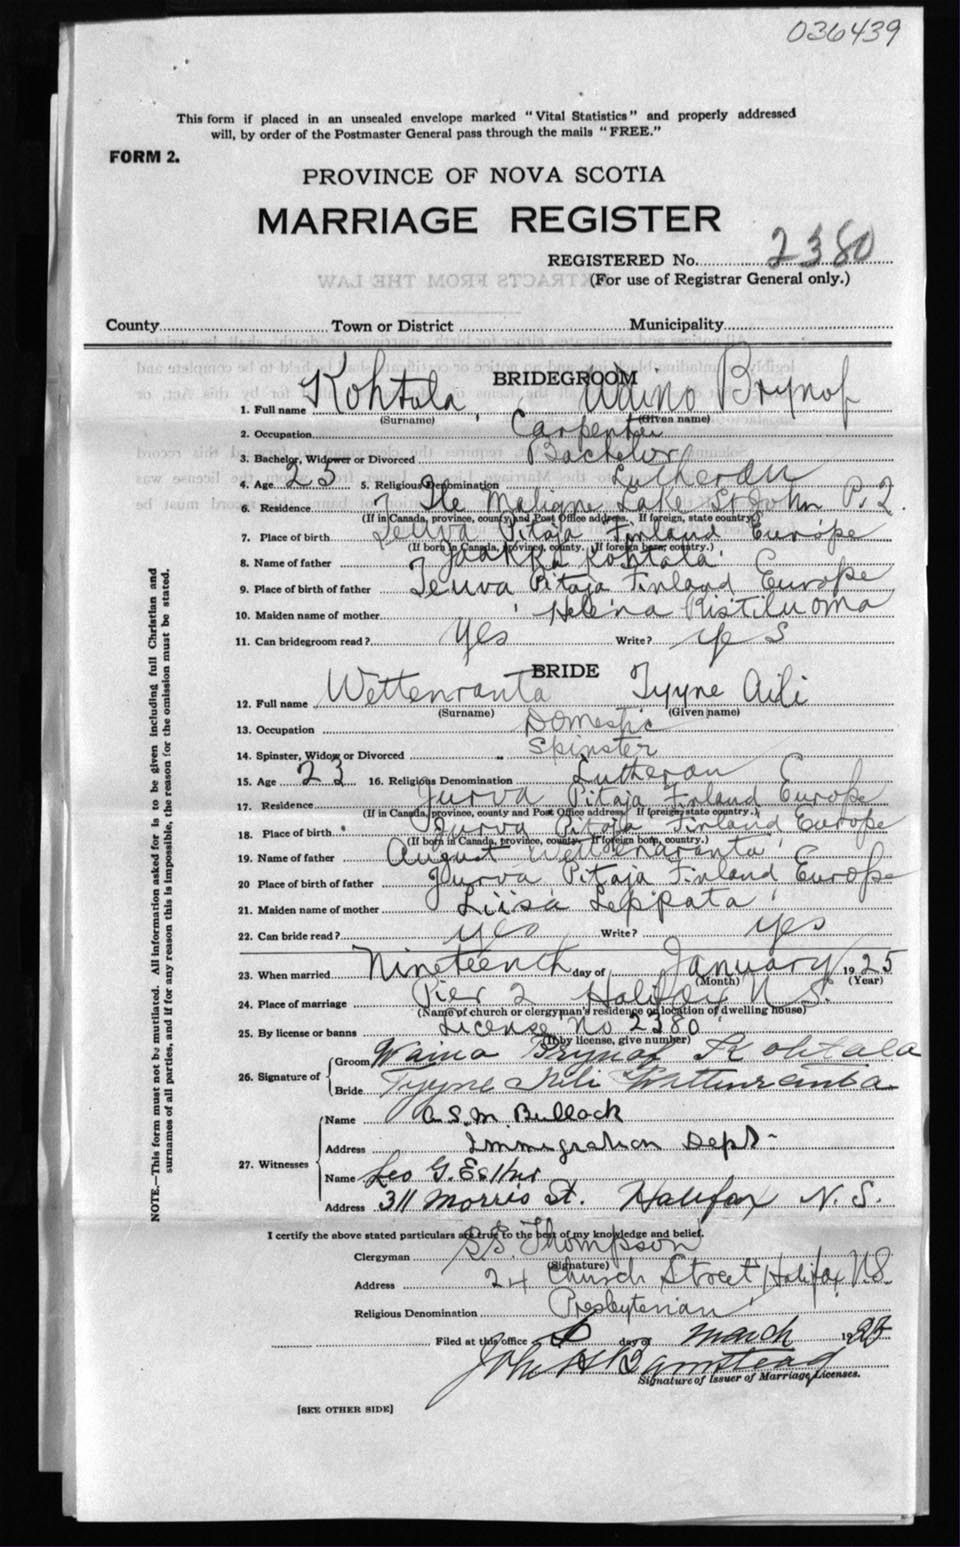 036439
This form if placed in an unsealed envelope marked "Vital Statistics" and properly addressed
will, by order of the Postmaster General pass through the mails "FREE."
FORM 2.
PROVINCE OF NOVA SCOTIA
MARRIAGE REGISTER
REGISTERED No. 2380
(For use of Registrar General only.)
County Town or District Municipality
BRIDEGROOM
1. Full name Kohtala, Waino Brynof
(Surname) (Given name)
2. Occupation Carpenter
3. Bachelor, Widower or Divorced Bachelor
4. Age 25 5. Religious Denomination Lutheran
6. Residence 7 Ile Maligne Lake St John P.2.
(If in Canada, province, county and Post Office address. If foreign, state country.)
7. Place of birth Teuva Pitaja Finland Europe
(If born in Canada, province, county. If foreign born, country.)
8. Name of father Jaakka Kohtala
9. Place of birth of father Teuva Pitaja Finland Europe
10. Maiden name of mother Helena Ristiluoma
11. Can bridegroom read? Yes Write? yes
BRIDE
12. Full name Wettenranta Tyyne Aili
(Surname) (Given name)
13. Occupation Domestic
14. Spinster, Widow or Divorced Spinster
15. Age 23 16. Religious Denomination Lutheran
17. Residence Jurva Pitaja Finland Europe
(If in Canada, province, county and Post Office address. If foreign, state country.)
18. Place of birth Jurva Pitaja Finland Europe
(If born in Canada, province, county. If foreign born, country.)
19. Name of father August Wettenaranta
20 Place of birth of father Jurva Pitaja Finland Europe
21. Maiden name of mother Liisa Leppata
22. Can bride read? yes Write? yes
23. When married Nineteenth day of January 1925
(Month) (Year)
24. Place of marriage Pier 2 Halifax N.S.
(Name of church or clergyman's residence or location of dwelling house)
25. By license or banns License No 2380
(If by license, give number)
26. Signature of
Groom Waino Brynof Kohtala
Bride Tyyne Aili Wettenranta
27. Witnesses
Name A.S.M. Bullock
Address Immigration Dept-
Name Leo G.
Address 311 Morris St. Halifax N.S.
I certify the above stated particulars are true to the best of my knowledge and belief.
Clergyman Thompson
(Signature)
Address 24 Church Street Halifax N.S.
Religious Denomination Presbyterian
Filed at this office day of March 19
John H Barnstead
Signature of Issuer of Marriage Licenses.
[SEE OTHER SIDE]
NOTE.—This form must not be mutilated. All information asked for is to be given including full Christian and
surnames of all parties, and if for any reason this is impossible, the reason for the omission must be stated.
EXTRACTS FROM THE LAW